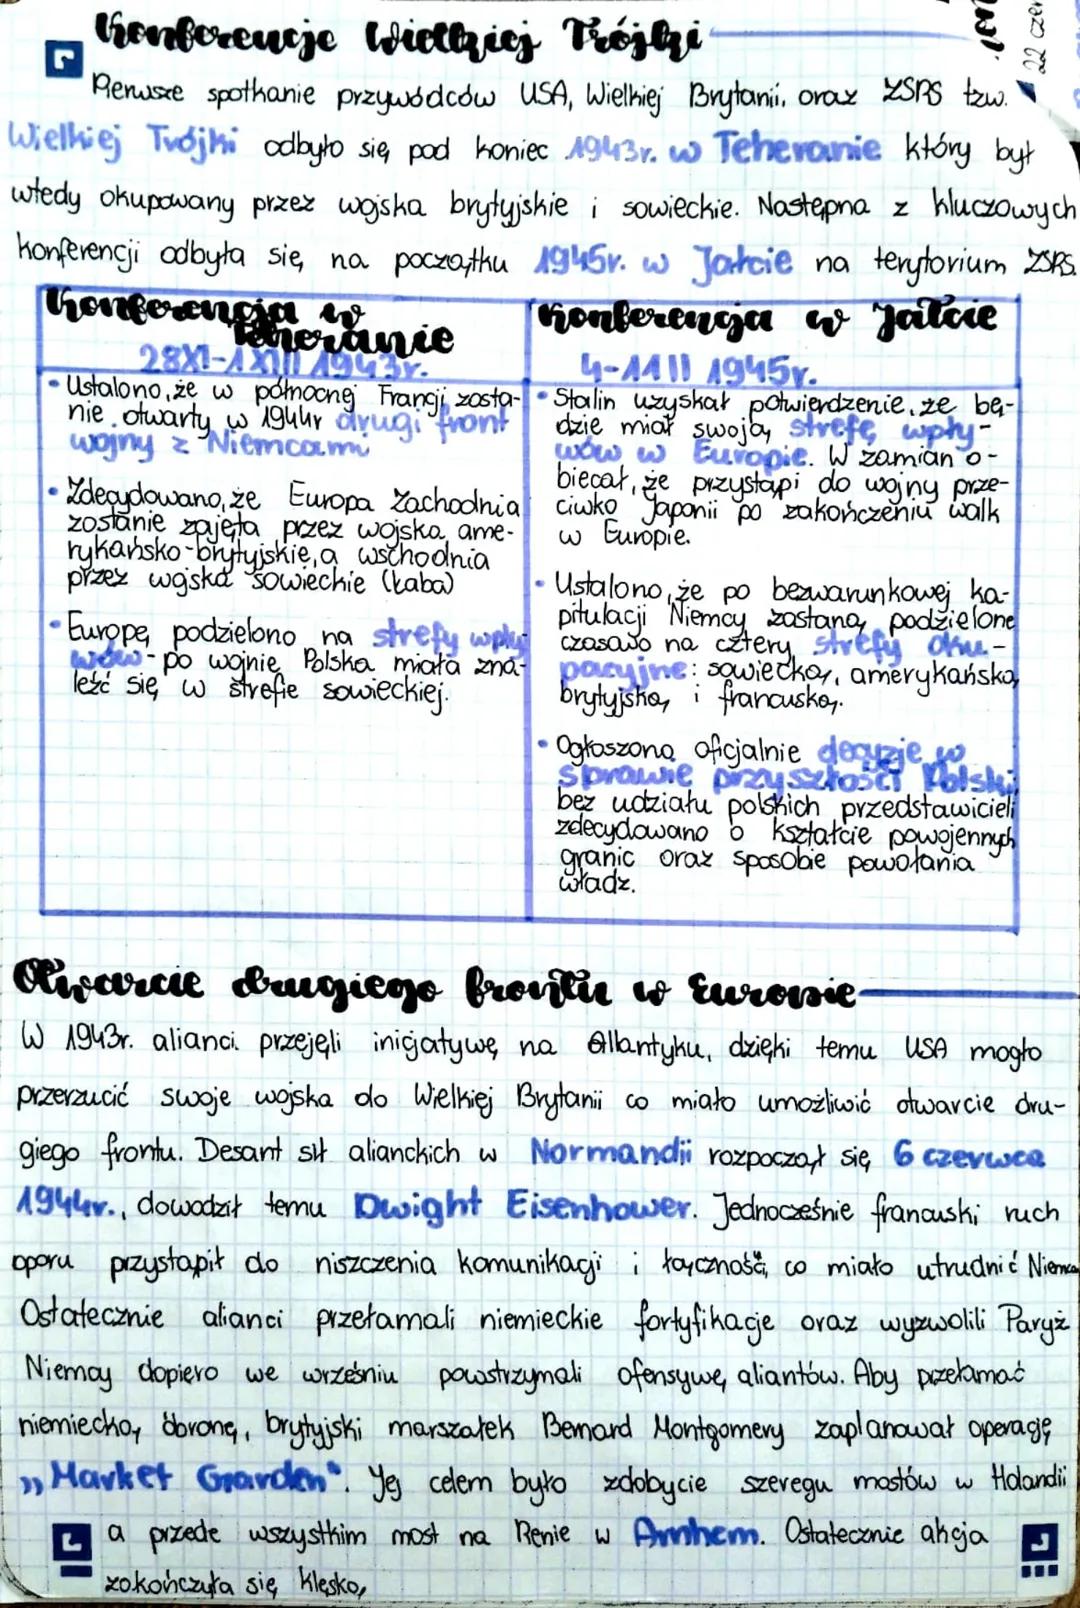 Konferencje Wielkiej Trójki
22 czer
Pierwsze spotkanie przywódców USA, Wielkiej Brytanii, oraz ZSRS tzw.
Wielkiej Trójki odbyło się pod koniec 1943r. w Teheranie który był
wtedy okupowany przez wojska brytyjskie i sowieckie. Następna z kluczowych
konferencji odbyła się na początku 1945r. w Jałcie na terytorium ZSRS.
Konferencja w
Teheranie
28XI-1XII 1943r.
• Ustalono, że w północnej Francji zosta-
nie otwarty w 1944r drugi front
wojny z Niemcami
• Zdecydowano, że Europa Zachodnia
zostanie zajęta przez wojska ame-
rykańsko-brytyjskie, a wschodnia
przez wojska sowieckie (Łaba)
• Europę podzielono na strefy wpły-
wów - po wojnie Polska miała zna-
leźć się w strefie sowieckiej.
Konferencja w Jałcie
4-11 II 1945r.
• Stalin uzyskał potwierdzenie, że bę-
dzie miał swoją strefę wpły-
wów w Europie. W zamian o-
biecał, że przystąpi do wojny prze-
ciwko Japonii po zakończeniu walk
w Europie.
• Ustalono, że po bezwarunkowej ka-
pitulacji Niemcy zostaną podzielone
czasowo na cztery strefy oku-
pacyjne: sowiecką, amerykańską,
brytyjską i francuską.
• Ogłoszono oficjalnie decyzje w
sprawie przyszłości Polski,
bez udziału polskich przedstawicieli
zdecydowano o kształcie powojennych
granic oraz sposobie powołania
władz.
Otwarcie drugiego frontu w Europie
W 1943r. alianci przejęli inicjatywę na Atlantyku, dzięki temu USA mogło
przerzucić swoje wojska do Wielkiej Brytanii co miało umożliwić otwarcie dru-
giego frontu. Desant sił alianckich w Normandii rozpoczął się 6 czerwca
1944r., dowodził temu Dwight Eisenhower. Jednocześnie francuski ruch
oporu przystąpił do niszczenia komunikacji i łączności, co miało utrudnić
Ostatecznie alianci przełamali niemieckie fortyfikacje oraz wyzwolili Paryż
Niemcy dopiero we wrześniu powstrzymali ofensywę aliantów. Aby przełamać
niemiecką obronę, brytyjski marszałek Bernard Montgomery zaplanował operację
„Market Garden". Jej celem było zdobycie szeregu mostów w Holandii
a przede wszystkim most na Renie w Arnhem. Ostatecznie akcja
zakończyła się klęską